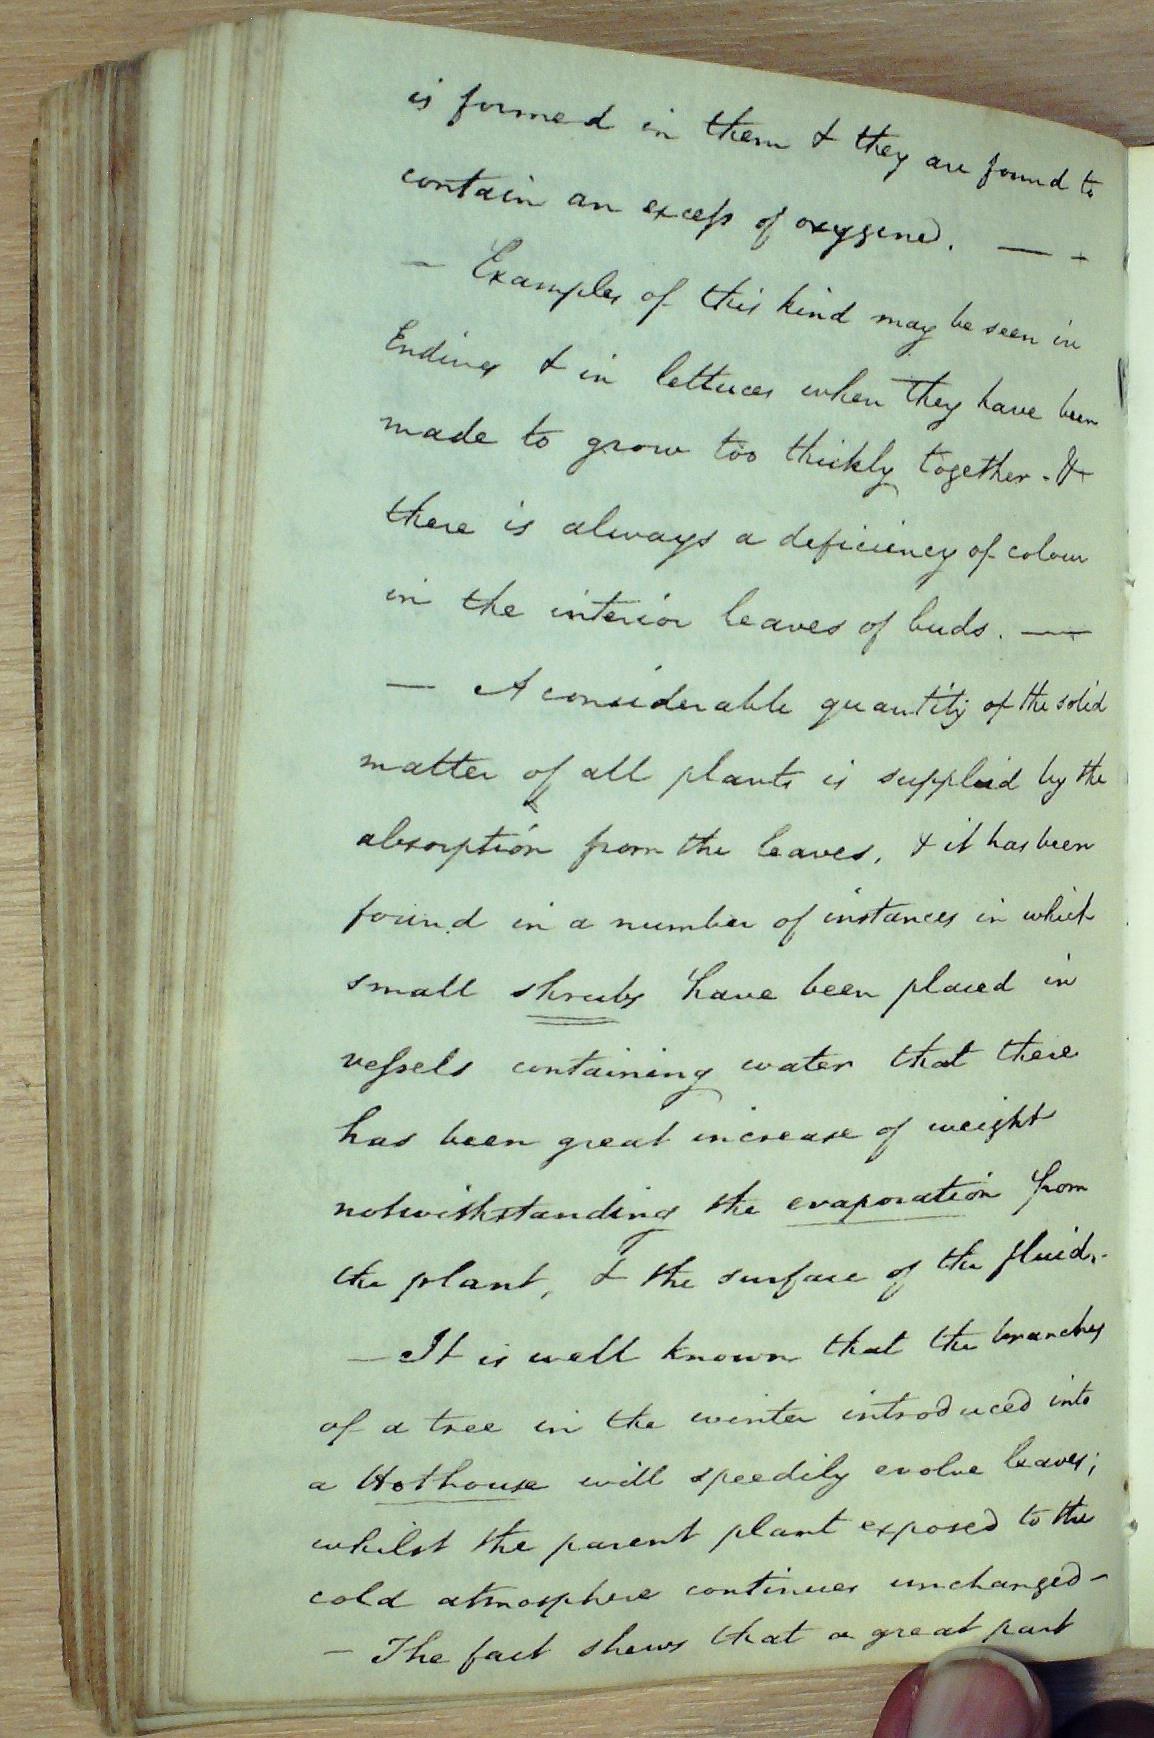 is formed in them & they are found to
contain an excess of oxygene. — -
— Examples of this kind may be seen in
Endives & in lettuces when they have been
made to grow too thickly together - &
there is always a deficiency of colour
in the interior leaves of buds. —
— A considerable quantity of the solid
matter of all plants is supplied by the
absorption from the leaves, & it has been
found in a number of instances in which
small shrubs have been placed in
vessels containing water that there
has been great increase of weight
notwithstanding the evaporation from
the plant, & the surface of the fluid. -
— It is well known that the branches
of a tree in the winter introduced into
a Hothouse will speedily evolve leaves;
whilst the parent plant exposed to the
cold atmosphere continues unchanged -
— The fact shews that a great part